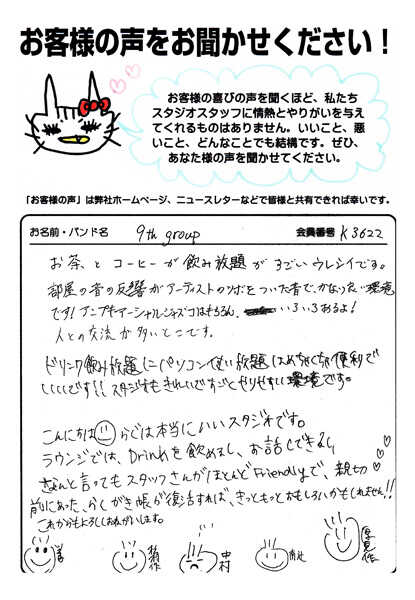 お客様の声をお聞かせください!
お客様の喜びの声を聞くほど、私たち
スタジオスタッフに情熱とやりがいを与え
てくれるものはありません。いいこと、悪
いこと、どんなことでも結構です。ぜひ、
あなた様の声を聞かせてください。
「お客様の声」は弊社ホームページ、ニュースレターなどで皆様と共有できれば幸いです。
お名前・バンド名 9th group 会員番号 K3622
お茶、と コーヒーが飲み放題が すごい ウレシイです。
部屋の音の反響がアーティストの
環境
です!アンプもマーシャル、ジャズコはもちろん、いろいろあるよ!
人との交流が多いとこです。
ドリンク飲み放題にパソコン使い放題はめちゃくちゃ便利で
いいです!!スタジオもきれいですごくやりやすい環境です。
こんにちは
らぐは本当にいいスタジオです。
ラウンジでは、Drinkを飲めるし、お話しできるし
なんと言ってもスタッフさんがほとんどFriendlyで、親切
前にあった、らくがき帳が復活すれば、きっともっとおもしろいかもしれません!!
これからもよろしくおねがいします。
中村